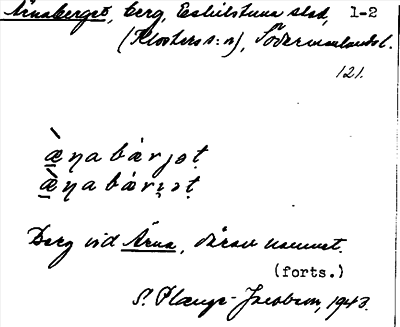 Ärnaberget, berg, Eskilstuna stad, 1-2
(Klosters s:n), Södermanlands l.
121.
æ̀ɳa bárjət
æ̀ɳa bárjət
Berg vid Ärna, därav namnet.
(forts.)
S. Plenge-Jacobsen, 1943.